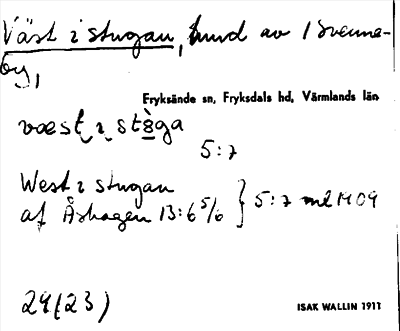 Väst i stugan, hmd av 1 Svenne-
by,
Fryksände sn, Fryksdals hd, Värmlands län
væst i stɞ̀ga
5:7
West i stugan
af Åshagen 13:6 5/6 } 5:7 ml 1909
29(23)
ISAK WALLIN 1911